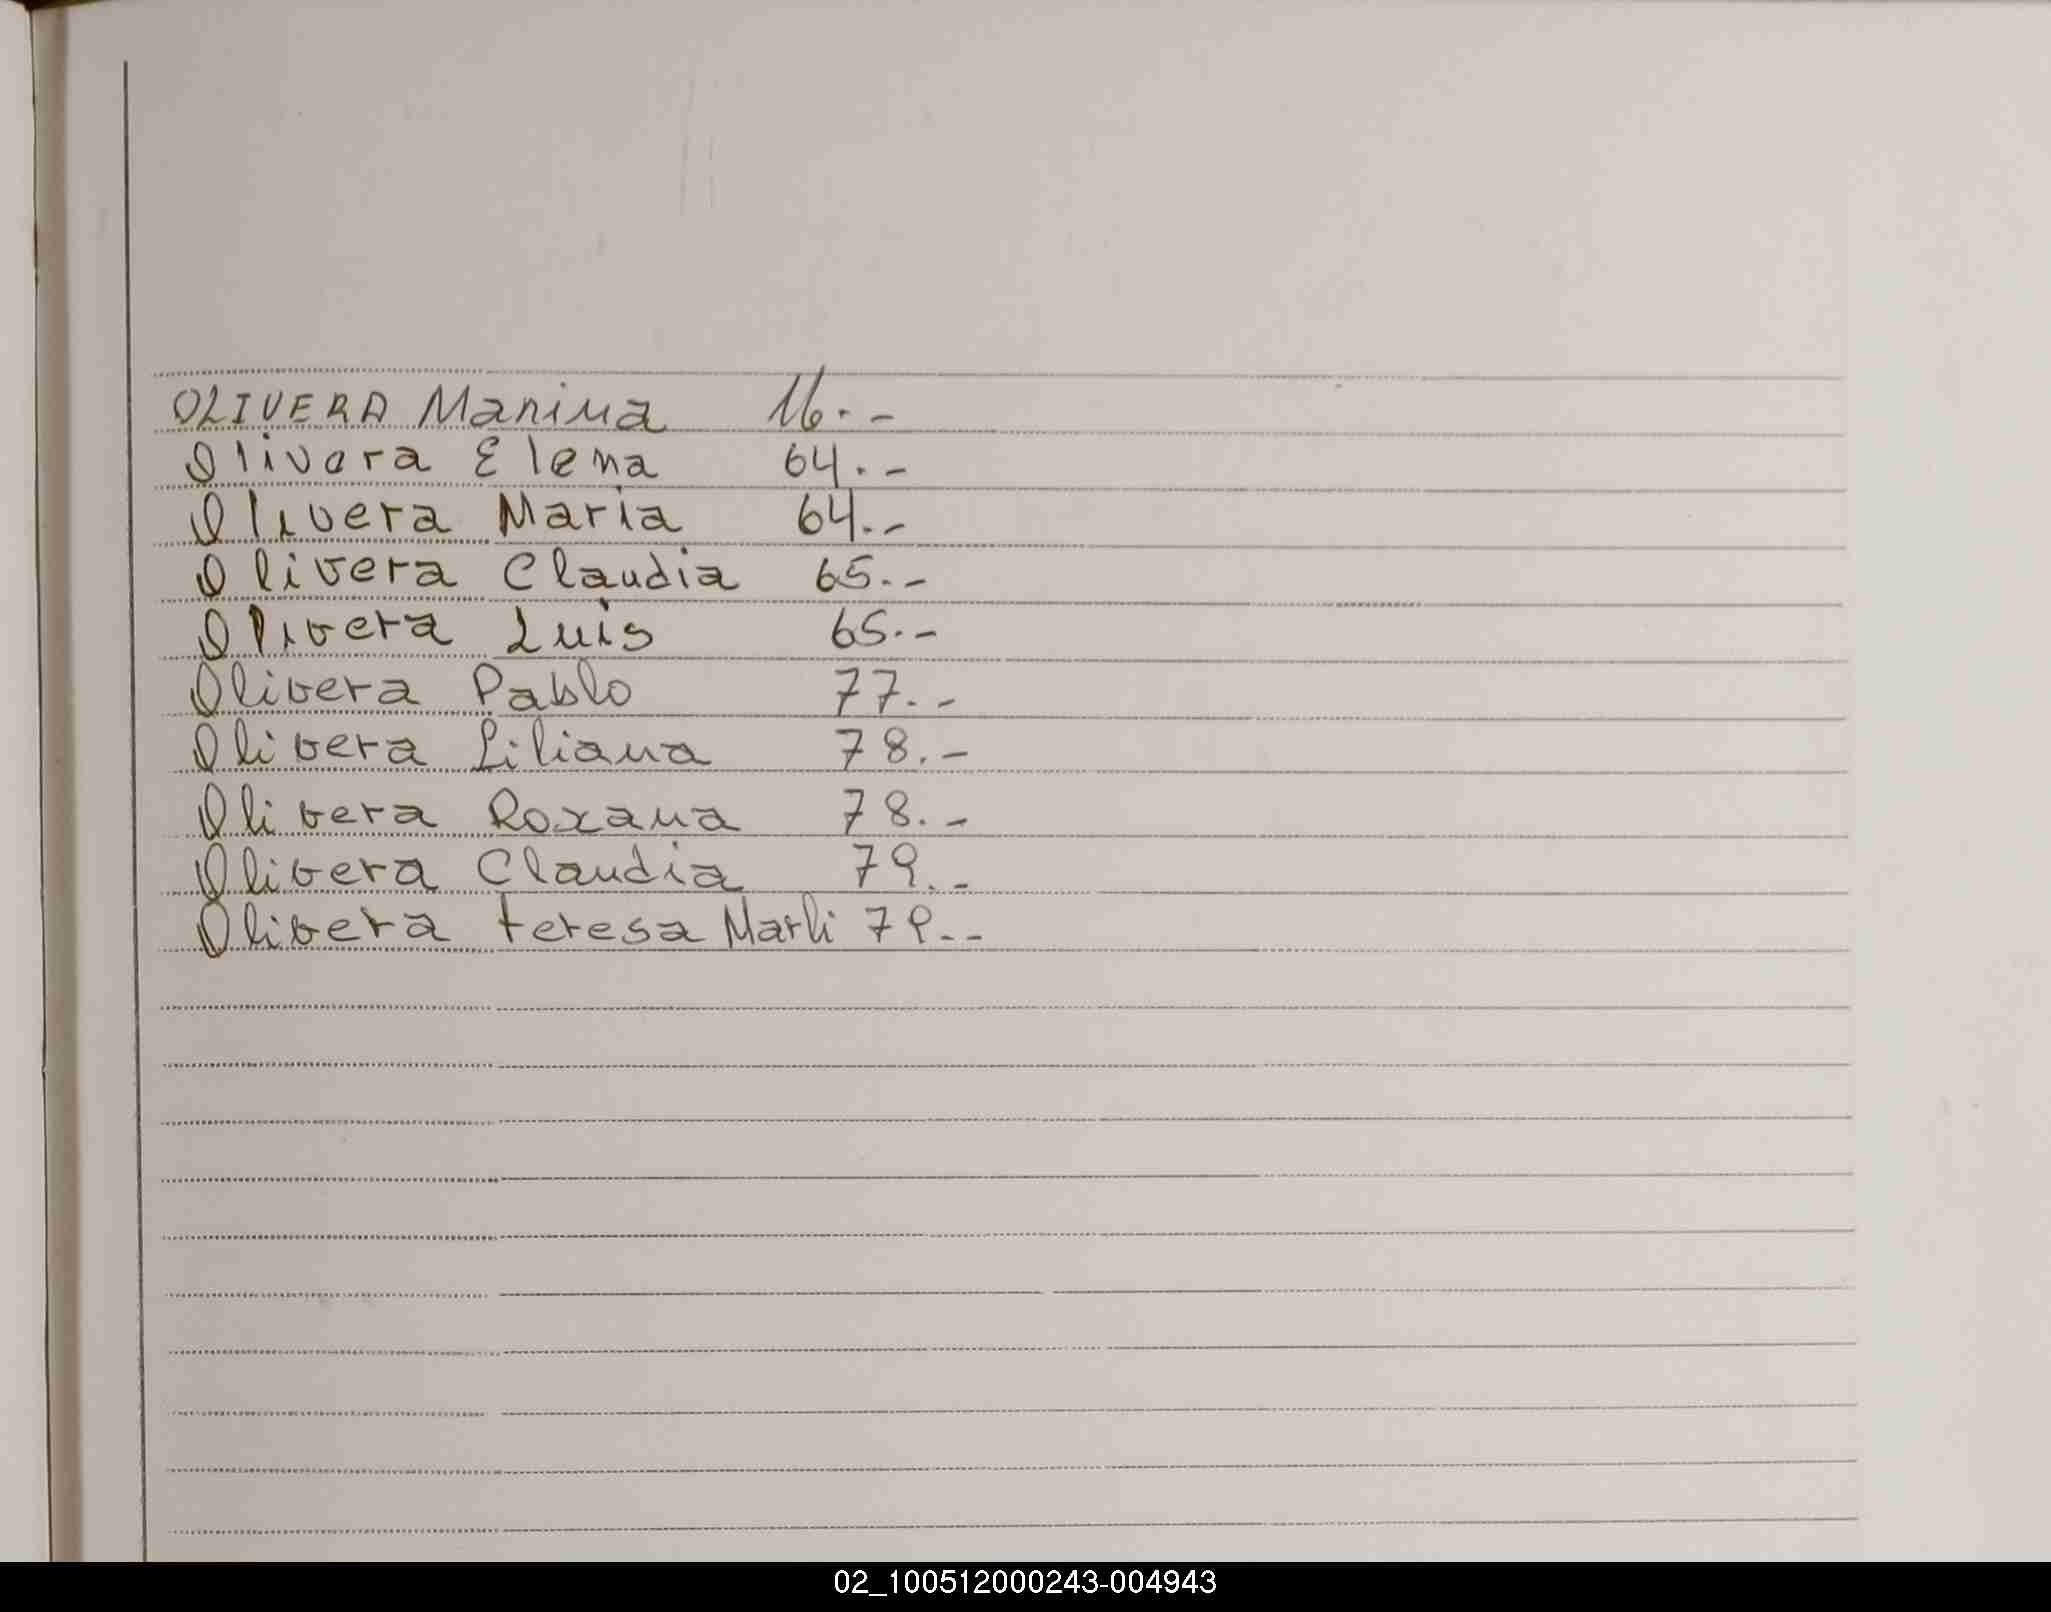 OLIVERA Marina 16.-
Olivera Elena 64.-
Olivera Maria 64.-
Olivera Claudia 65.-
Olivera Luis 65.-
Olivera Pablo 77.-
Olivera Liliana 78.-
Olivera Roxana 78.-
Olivera Claudia 79.-
Olivera teresa Marli 79.-
02_100512000243-004943